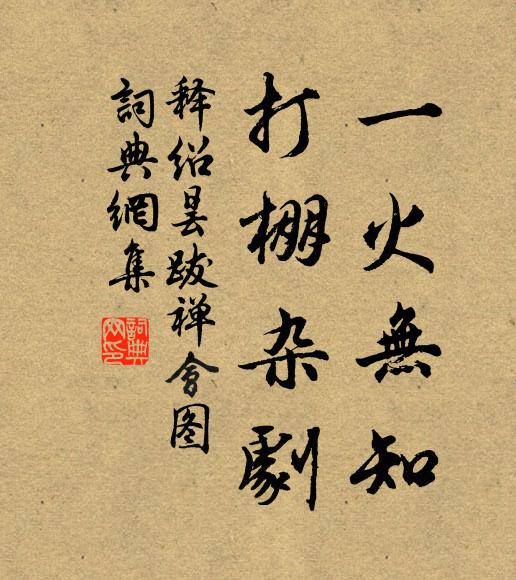 一火無知
打棚杂劇
释绍昙跋禅會图
詞典網集
詞典网印